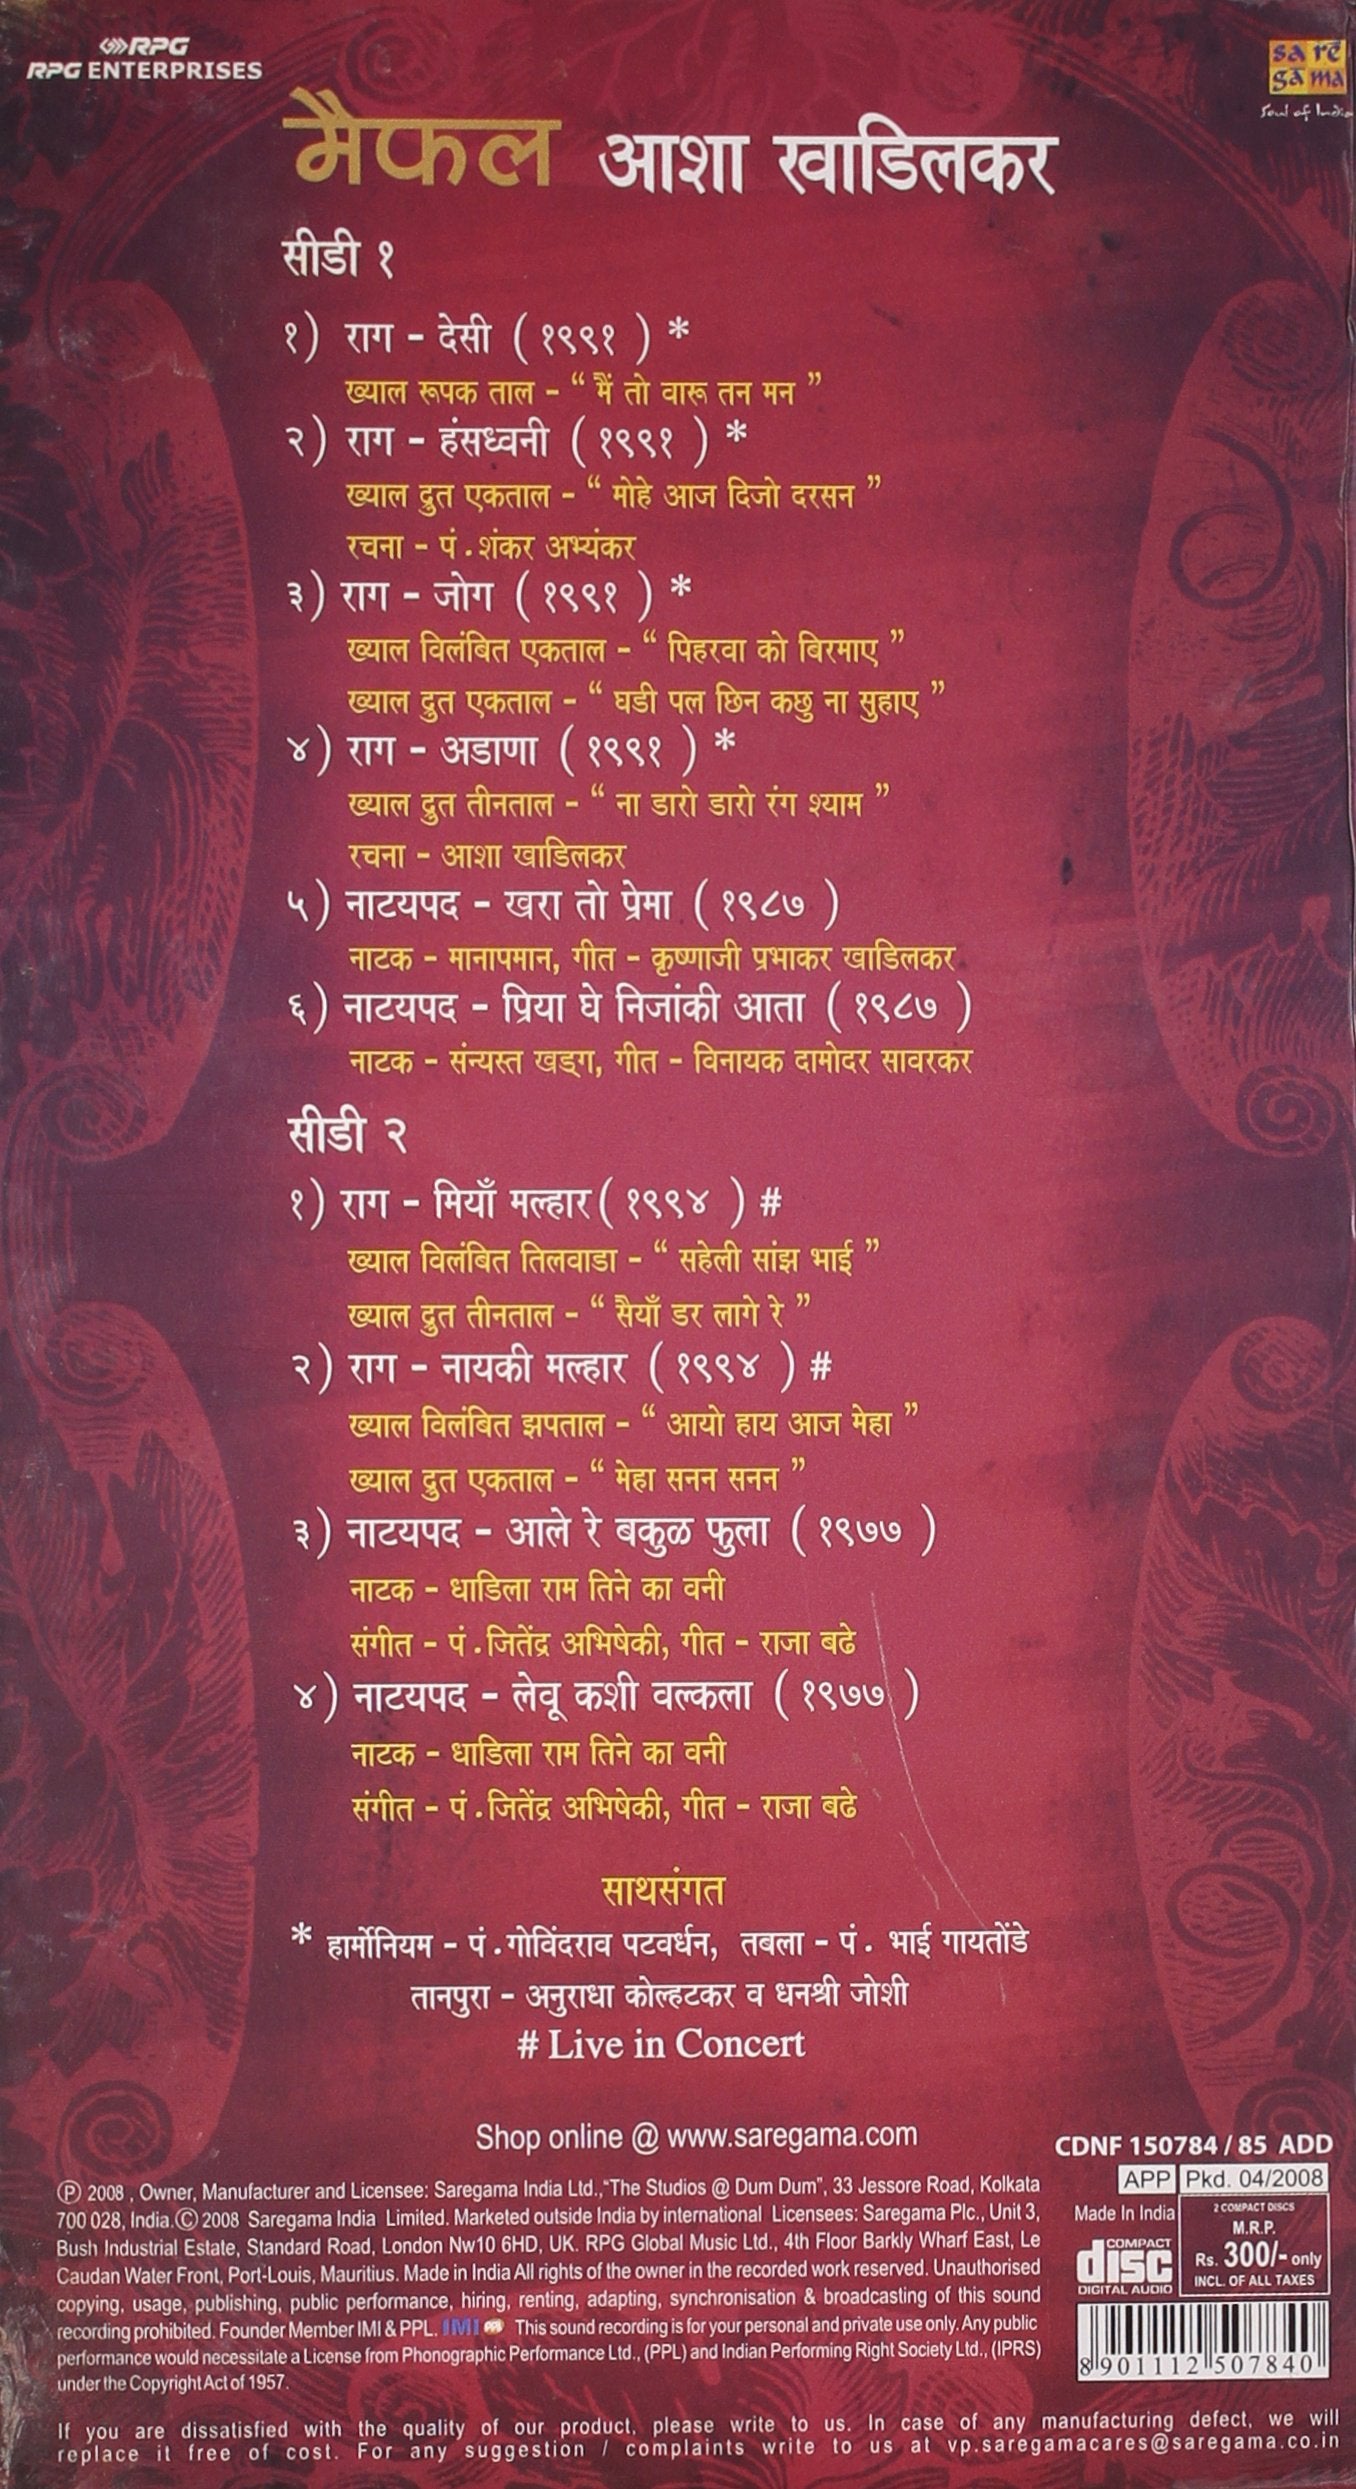 RPG
RPG ENTERPRISES
sa re
ga ma
Soul of India
मैफल आशा खाडिलकर
सीडी १
१) राग - देसी ( १९९१ ) *
ख्याल रूपक ताल - “ मैं तो वारू तन मन ”
२) राग - हंसध्वनी ( १९९१ ) *
ख्याल द्रुत एकताल - “ मोहे आज दिजो दरसन ”
रचना - पं .शंकर अभ्यंकर
३) राग - जोग ( १९९१ ) *
ख्याल विलंबित एकताल - “ पिहरवा को बिरमाए ”
ख्याल द्रुत एकताल - “ घडी पल छिन कछु ना सुहाए ”
४) राग - अडाणा ( १९९१ ) *
ख्याल द्रुत तीनताल - “ ना डारो डारो रंग श्याम ”
रचना - आशा खाडिलकर
५) नाटयपद - खरा तो प्रेमा ( १९८७ )
नाटक - मानापमान, गीत - कृष्णाजी प्रभाकर खाडिलकर
६) नाटयपद - प्रिया घे निजांकी आता ( १९८७ )
नाटक - संन्यस्त खड्ग, गीत - विनायक दामोदर सावरकर
सीडी २
१) राग - मियाँ मल्हार ( १९९४ ) #
ख्याल विलंबित तिलवाडा - “ सहेली सांझ भाई ”
ख्याल द्रुत तीनताल - “ सैयाँ डर लागे रे ”
२) राग - नायकी मल्हार ( १९९४ ) #
ख्याल विलंबित झपताल - “ आयो हाय आज मेहा ”
ख्याल द्रुत एकताल - “ मेहा सनन सनन ”
३) नाटयपद - आले रे बकुळ फुला ( १९७७ )
नाटक - धाडिला राम तिने का वनी
संगीत - पं .जितेंद्र अभिषेकी, गीत - राजा बढे
४) नाटयपद - लेवू कशी वल्कला ( १९७७ )
नाटक - धाडिला राम तिने का वनी
संगीत - पं .जितेंद्र अभिषेकी, गीत - राजा बढे
साथसंगत
* हार्मोनियम - पं .गोविंदराव पटवर्धन, तबला - पं . भाई गायतोंडे
तानपुरा - अनुराधा कोल्हटकर व धनश्री जोशी
# Live in Concert
Shop online @ www.saregama.com
CDNF 150784 / 85 ADD
APP Pkd. 04/2008
Made In India
2 COMPACT DISCS
M.R.P.
Rs. 300/- only
INCL. OF ALL TAXES
COMPACT
disc
DIGITAL AUDIO
8 901112 507840
Ⓟ 2008 , Owner, Manufacturer and Licensee: Saregama India Ltd.,“The Studios @ Dum Dum”, 33 Jessore Road, Kolkata
700 028, India.Ⓒ 2008 Saregama India Limited. Marketed outside India by international Licensees: Saregama Plc., Unit 3,
Bush Industrial Estate, Standard Road, London Nw10 6HD, UK. RPG Global Music Ltd., 4th Floor Barkly Wharf East, Le
Caudan Water Front, Port-Louis, Mauritius. Made in India All rights of the owner in the recorded work reserved. Unauthorised
copying, usage, publishing, public performance, hiring, renting, adapting, synchronisation & broadcasting of this sound
recording prohibited. Founder Member IMI & PPL. IMI This sound recording is for your personal and private use only. Any public
performance would necessitate a License from Phonographic Performance Ltd., (PPL) and Indian Performing Right Society Ltd., (IPRS)
under the Copyright Act of 1957.
If you are dissatisfied with the quality of our product, please write to us. In case of any manufacturing defect, we will
replace it free of cost. For any suggestion / complaints write to us at vp.saregamacares@saregama.co.in